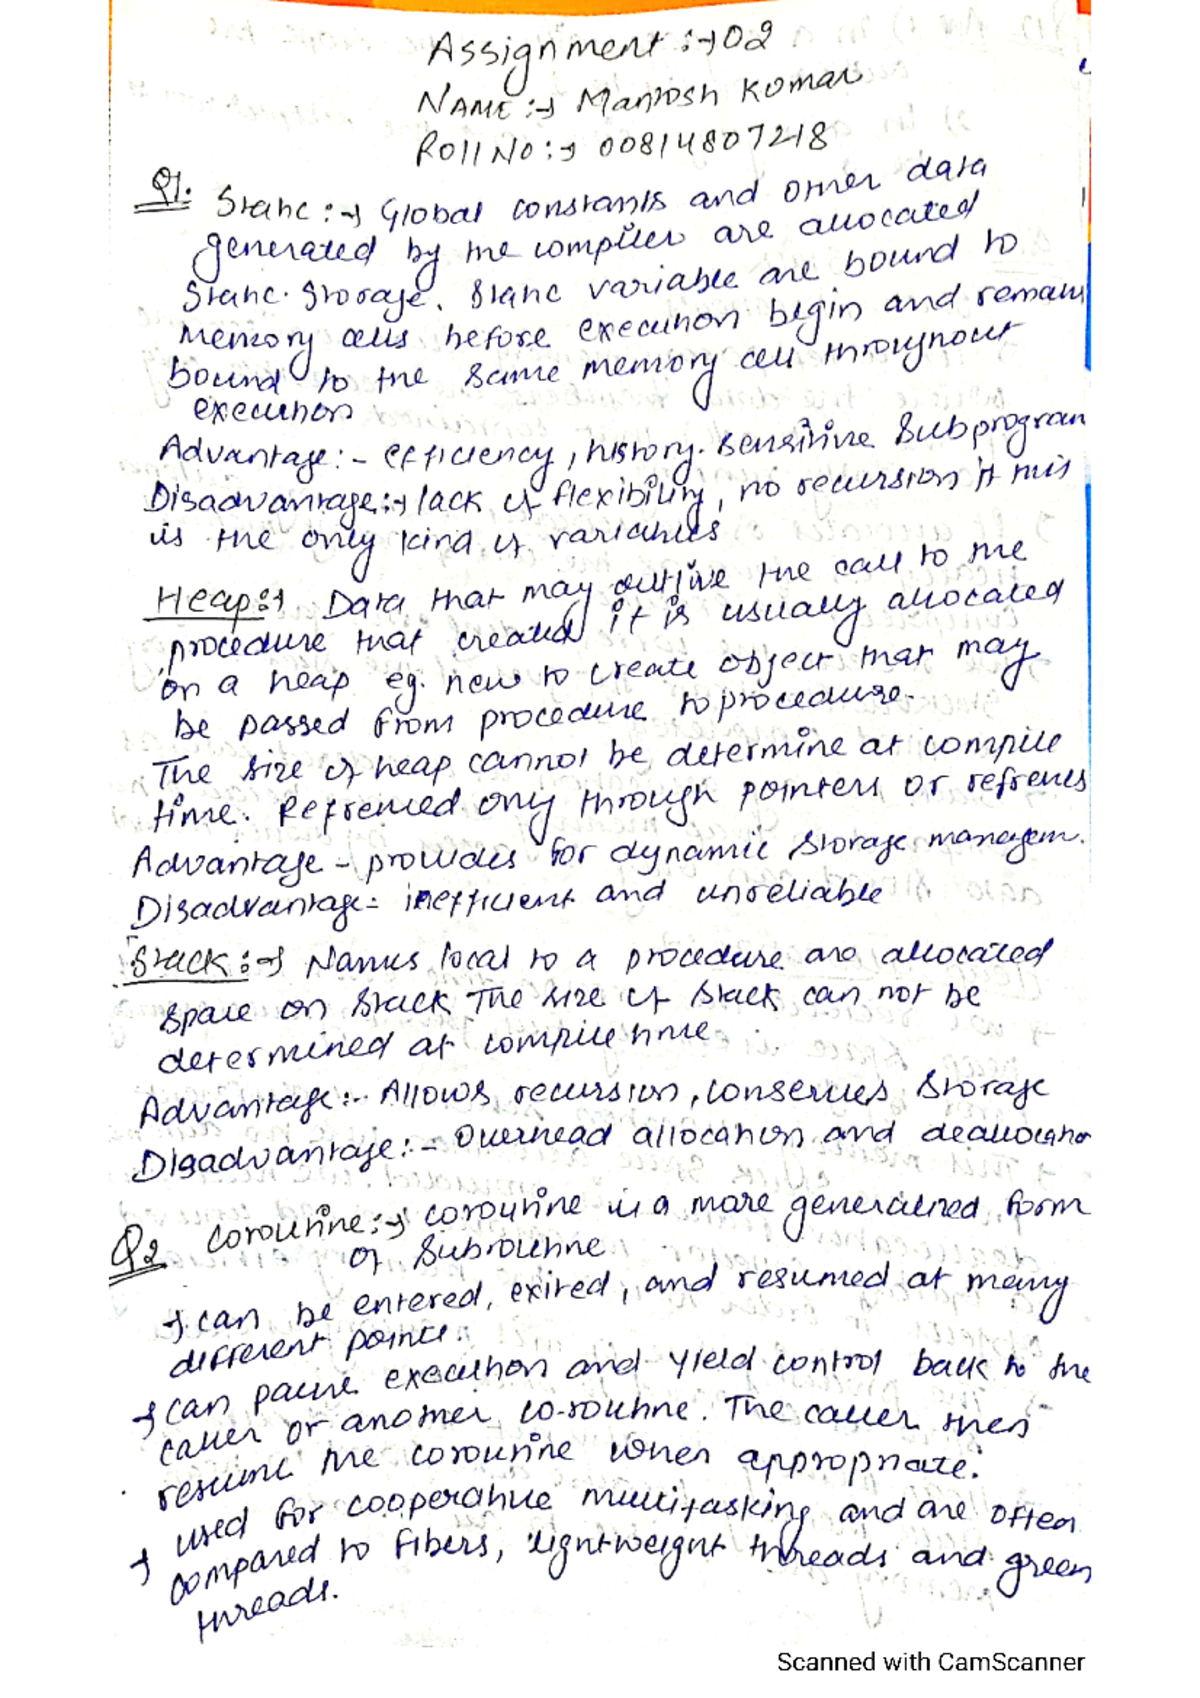 Assignment :→ 02
NAME :→ Mantosh Kumar
Roll No :→ 00814807218
Q1. Static :→ Global constants and other data
generated by the compiler are allocated
Static storage. Static variable are bound to
memory cells before execution begin and remains
bound to the same memory cell throughout
execution
Advantage :- efficiency, history-sensitive Subprogram
Disadvantage :→ lack of flexibility, no recursion if this
is the only kind of variables
Heap :→ Data that may outlive the call to the
procedure that created it is usually allocated
on a heap eg. new to create object that may
be passed from procedure to procedure.
The size of heap cannot be determine at compile
time. Refrenced only through pointers or refrences
Advantage - provides for dynamic storage managem.
Disadvantage = inefficient and unreliable
Stack :→ Names local to a procedure are allocated
space on stack The size of stack can not be
determined at compile time.
Advantage :- Allows recursion, conserves storage
Disadvantage :- Overhead allocation and deallocation
Q2 coroutine :→ coroutine is a more generalized form
of subroutine
→ can be entered, exited, and resumed at many
different points.
→ can pause execution and yield control back to the
caller or another co-routine. The caller then
resume the coroutine when appropriate.
→ used for cooperative multitasking and are often
compared to fibers, lightweight threads and green
threads.
Scanned with CamScanner